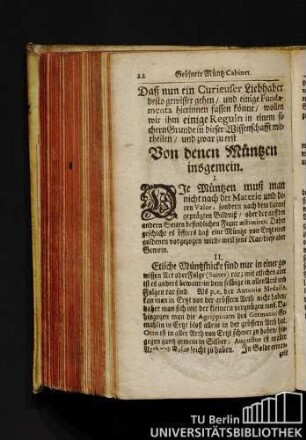 22 Geöfnete Müntz Cabinet.
Daß nun ein Curieuser Liebhaber
desto gewisser gehen / und einige Funda-
menta hierinnen fassen könne / wollen
wir ihm einige Reguln in einem si-
chern Grunde in dieser Wissenschafft mit-
theilen / und zwar zu erst
Von denen Müntzen
insgemein.
I.
DIe Müntzen muß man
nicht nach der Materie und de-
ren Valor, sondern nach dem darauf
geprägten Bildniß / oder der auf der
andern Seiten befindlichen Figur æstimiren. Daher
geschicht es öfters daß eine Müntz von Ertzt einer
guldenen vorgezogen wird / weil jene Rar / diese aber
Gemein.
II.
Etliche Müntzstücke sind nur in einer ge-
wissen Art oder Folge (Suiten) rar; mit etlichen aber
ist es anders bewant / indem selbige in allen Art und
Folgen rar sind. Als p. e. der Antonia Medaille
kan man in Ertzt von der grössern Arth nicht haben /
daher man sich mit der kleinern vergnügen muß. Da-
hingegen man die Agrippinam des Germanici Ge-
mahlin in Ertzt bloß allein in der grössern Arth hat.
Otto ist in aller Arth von Ertzt schwer zu haben / hin-
gegen gantz gemein in Silber; Augustus ist in aller
leicht zu haben. In Golde
TU Berlin
UNIVERSITÄTSBIBLIOTHEK